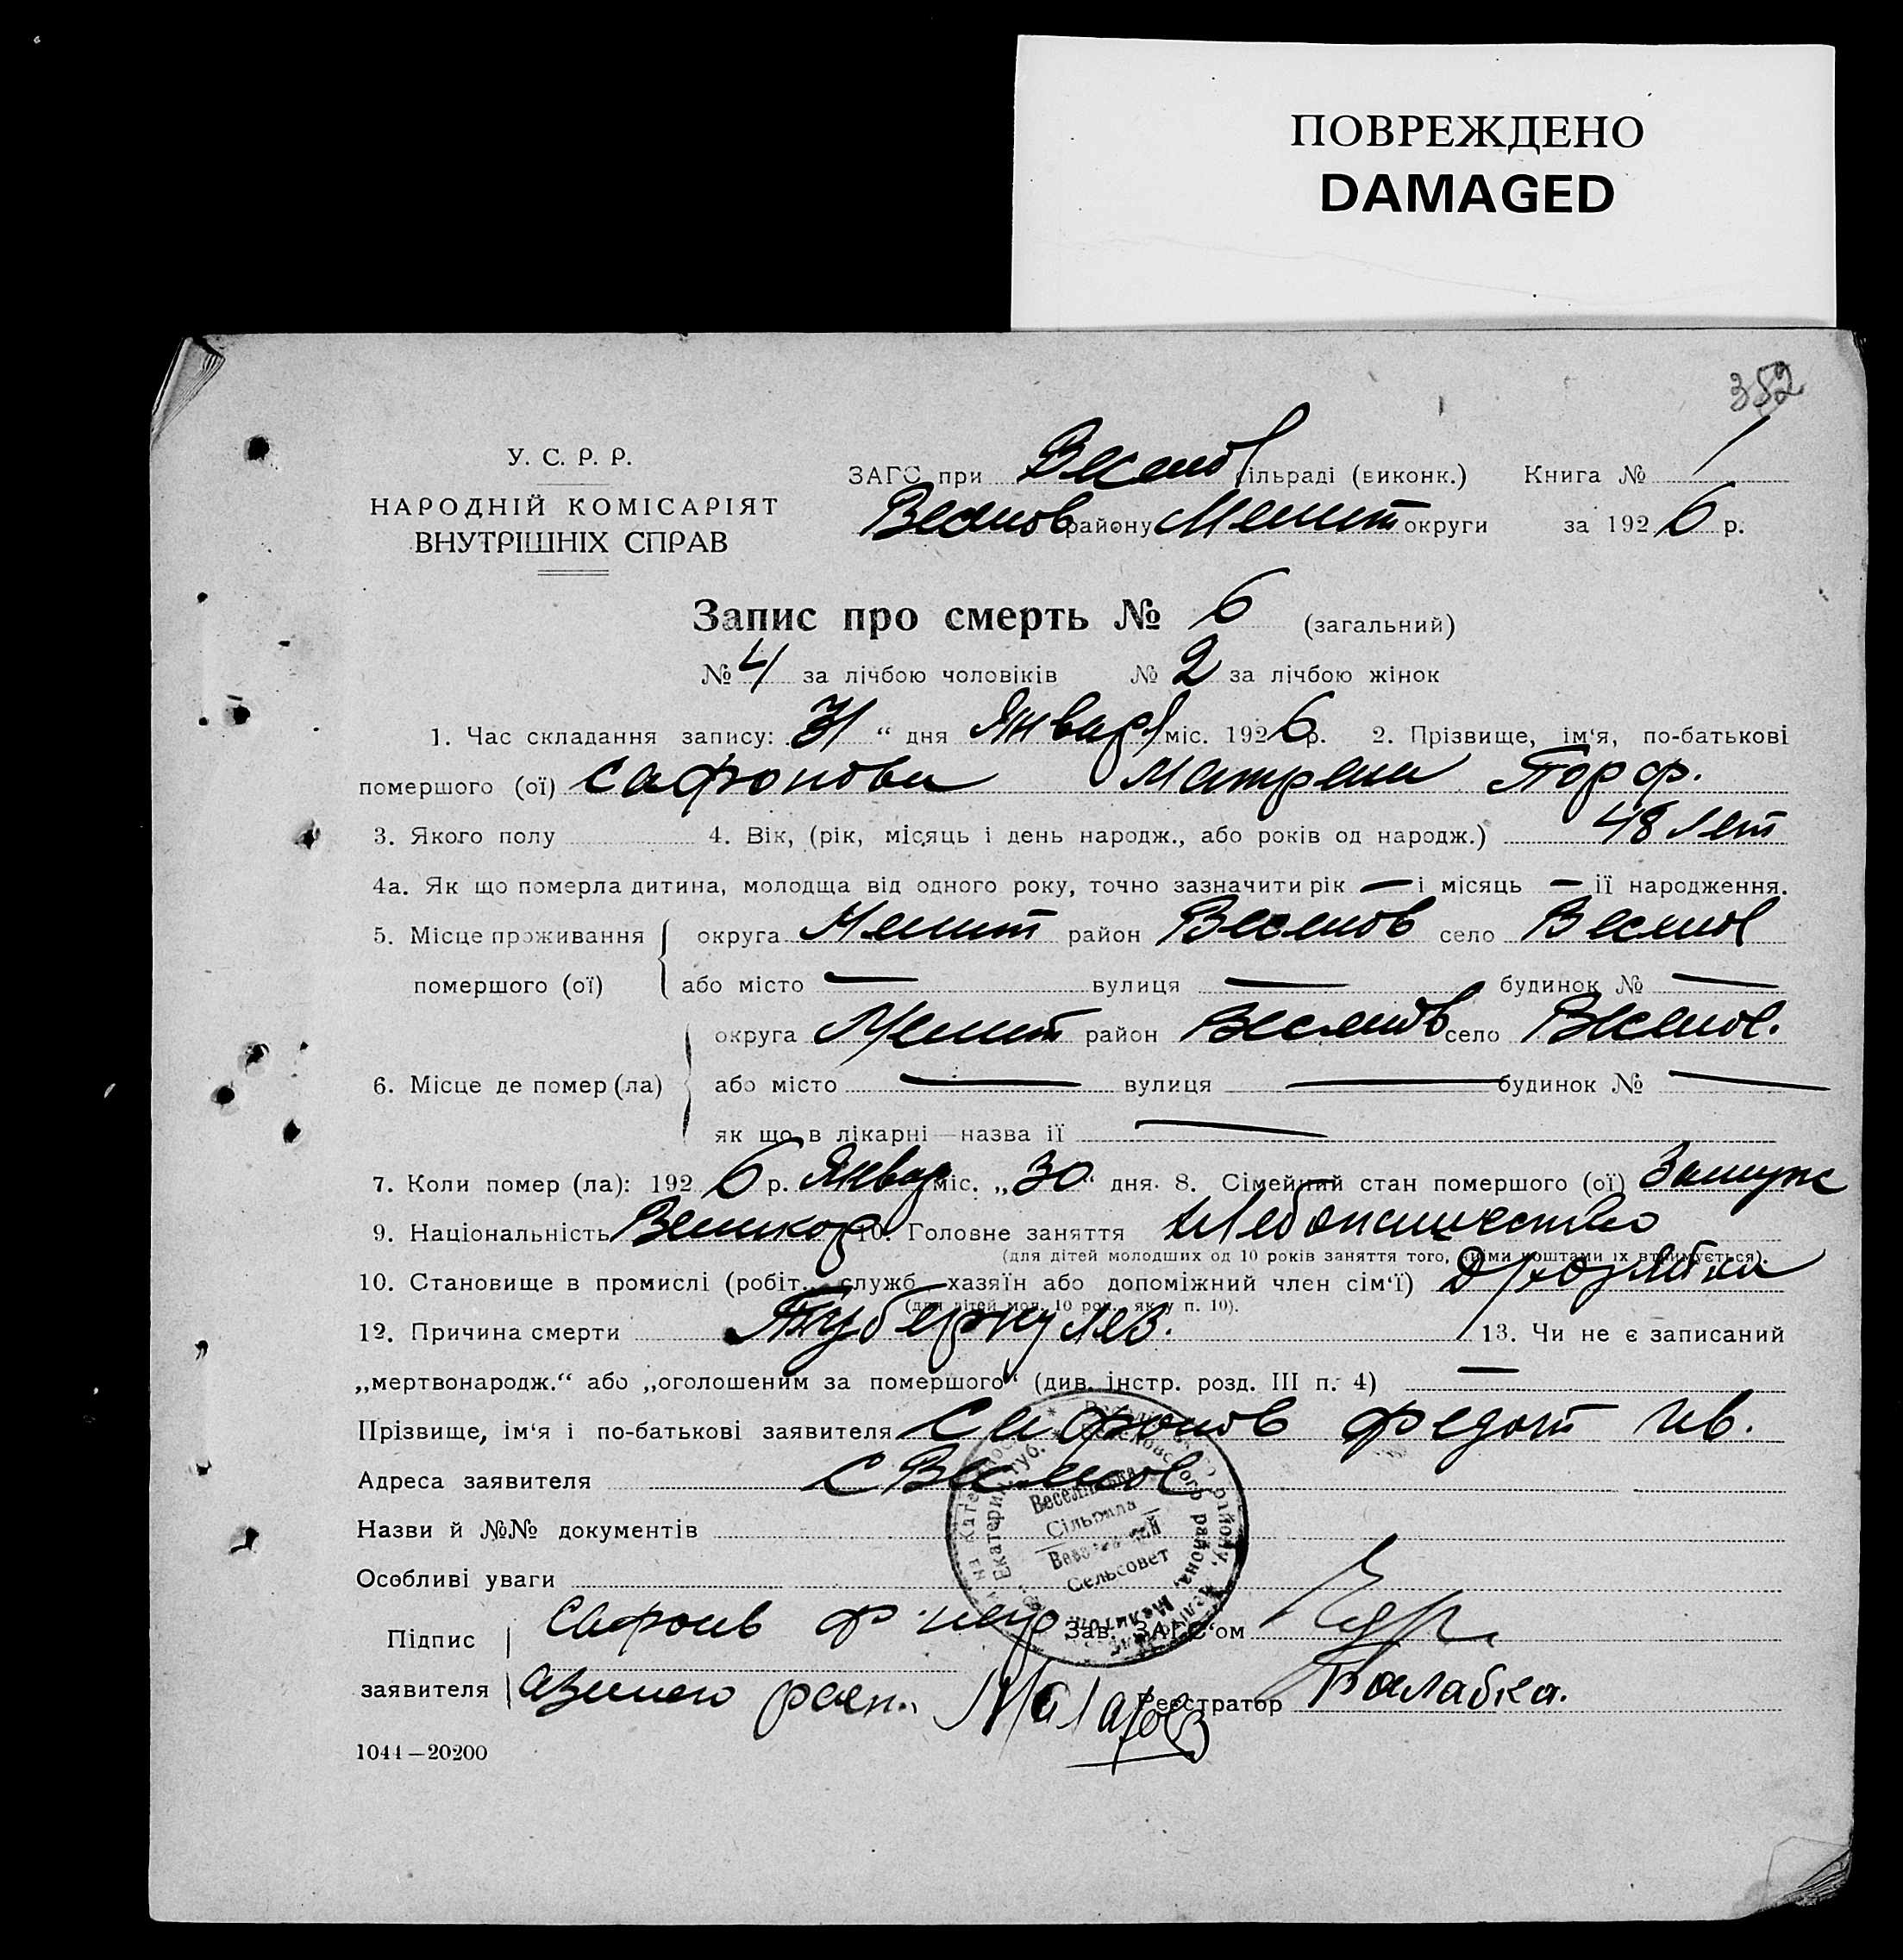 ПОВРЕЖДЕНО
DAMAGED
352
У. С. Р. Р.
НАРОДНІЙ КОМІСАРІЯТ
ВНУТРІШНІХ СПРАВ
ЗАГС при Весело сільраді (виконк.) Книга № 1
Веселов району Мелит округи за 1926 р.
Запис про смерть № 6 (загальний)
№ 4 за лічбою чоловіків № 2 за лічбою жінок
1. Час складання запису: 31 “ дня Января міс. 1926 р. 2. Прізвище, ім‘я, по-батькові
помершого (ої) Сафонова Матрена Порф.
3. Якого полу 4. Вік, (рік, місяць і день народж., або років од народж.) 48 лет
4а. Як що померла дитина, молодща від одного року, точно зазначити рік — і місяць — її народження.
5. Місце проживання округа Мелит район Веселов село Весело
помершого (ої) або місто — вулиця — будинок № —
округа Мелит район Веселов село Весело.
6. Місце де помер (ла) або місто — вулиця — будинок № —
як що в лікарні—назва її —
7. Коли помер (ла): 1926 р. Январ міс. „30“ дня. 8. Сімейний стан помершого (ої) Замуж
9. Національність Великор 10. Головне заняття Хлебопашество
(для дітей молодших од 10 років заняття того, чиїми коштами їх втримується).
10. Становище в промислі (робіт., служб., хазяїн або допоміжний член сім‘ї)
(для дітей мол. 10 рок., як у п. 10).
12. Причина смерти Туберкулез. 13. Чи не є записаний
„мертвонародж.“ або „оголошеним за помершого“ (див. інстр. розд. III п. 4) —
Прізвище, ім‘я і по-батькові заявителя Сафонов Федот Ив.
Адреса заявителя С Весело
Назви й №№ документів
Особливі уваги
Веселівська
Сільрада
Сельсовет
Підпис Сафонов Ф Зав. ЗАГС‘ом
заявителя Реєстратор Балабка.
1044—20200